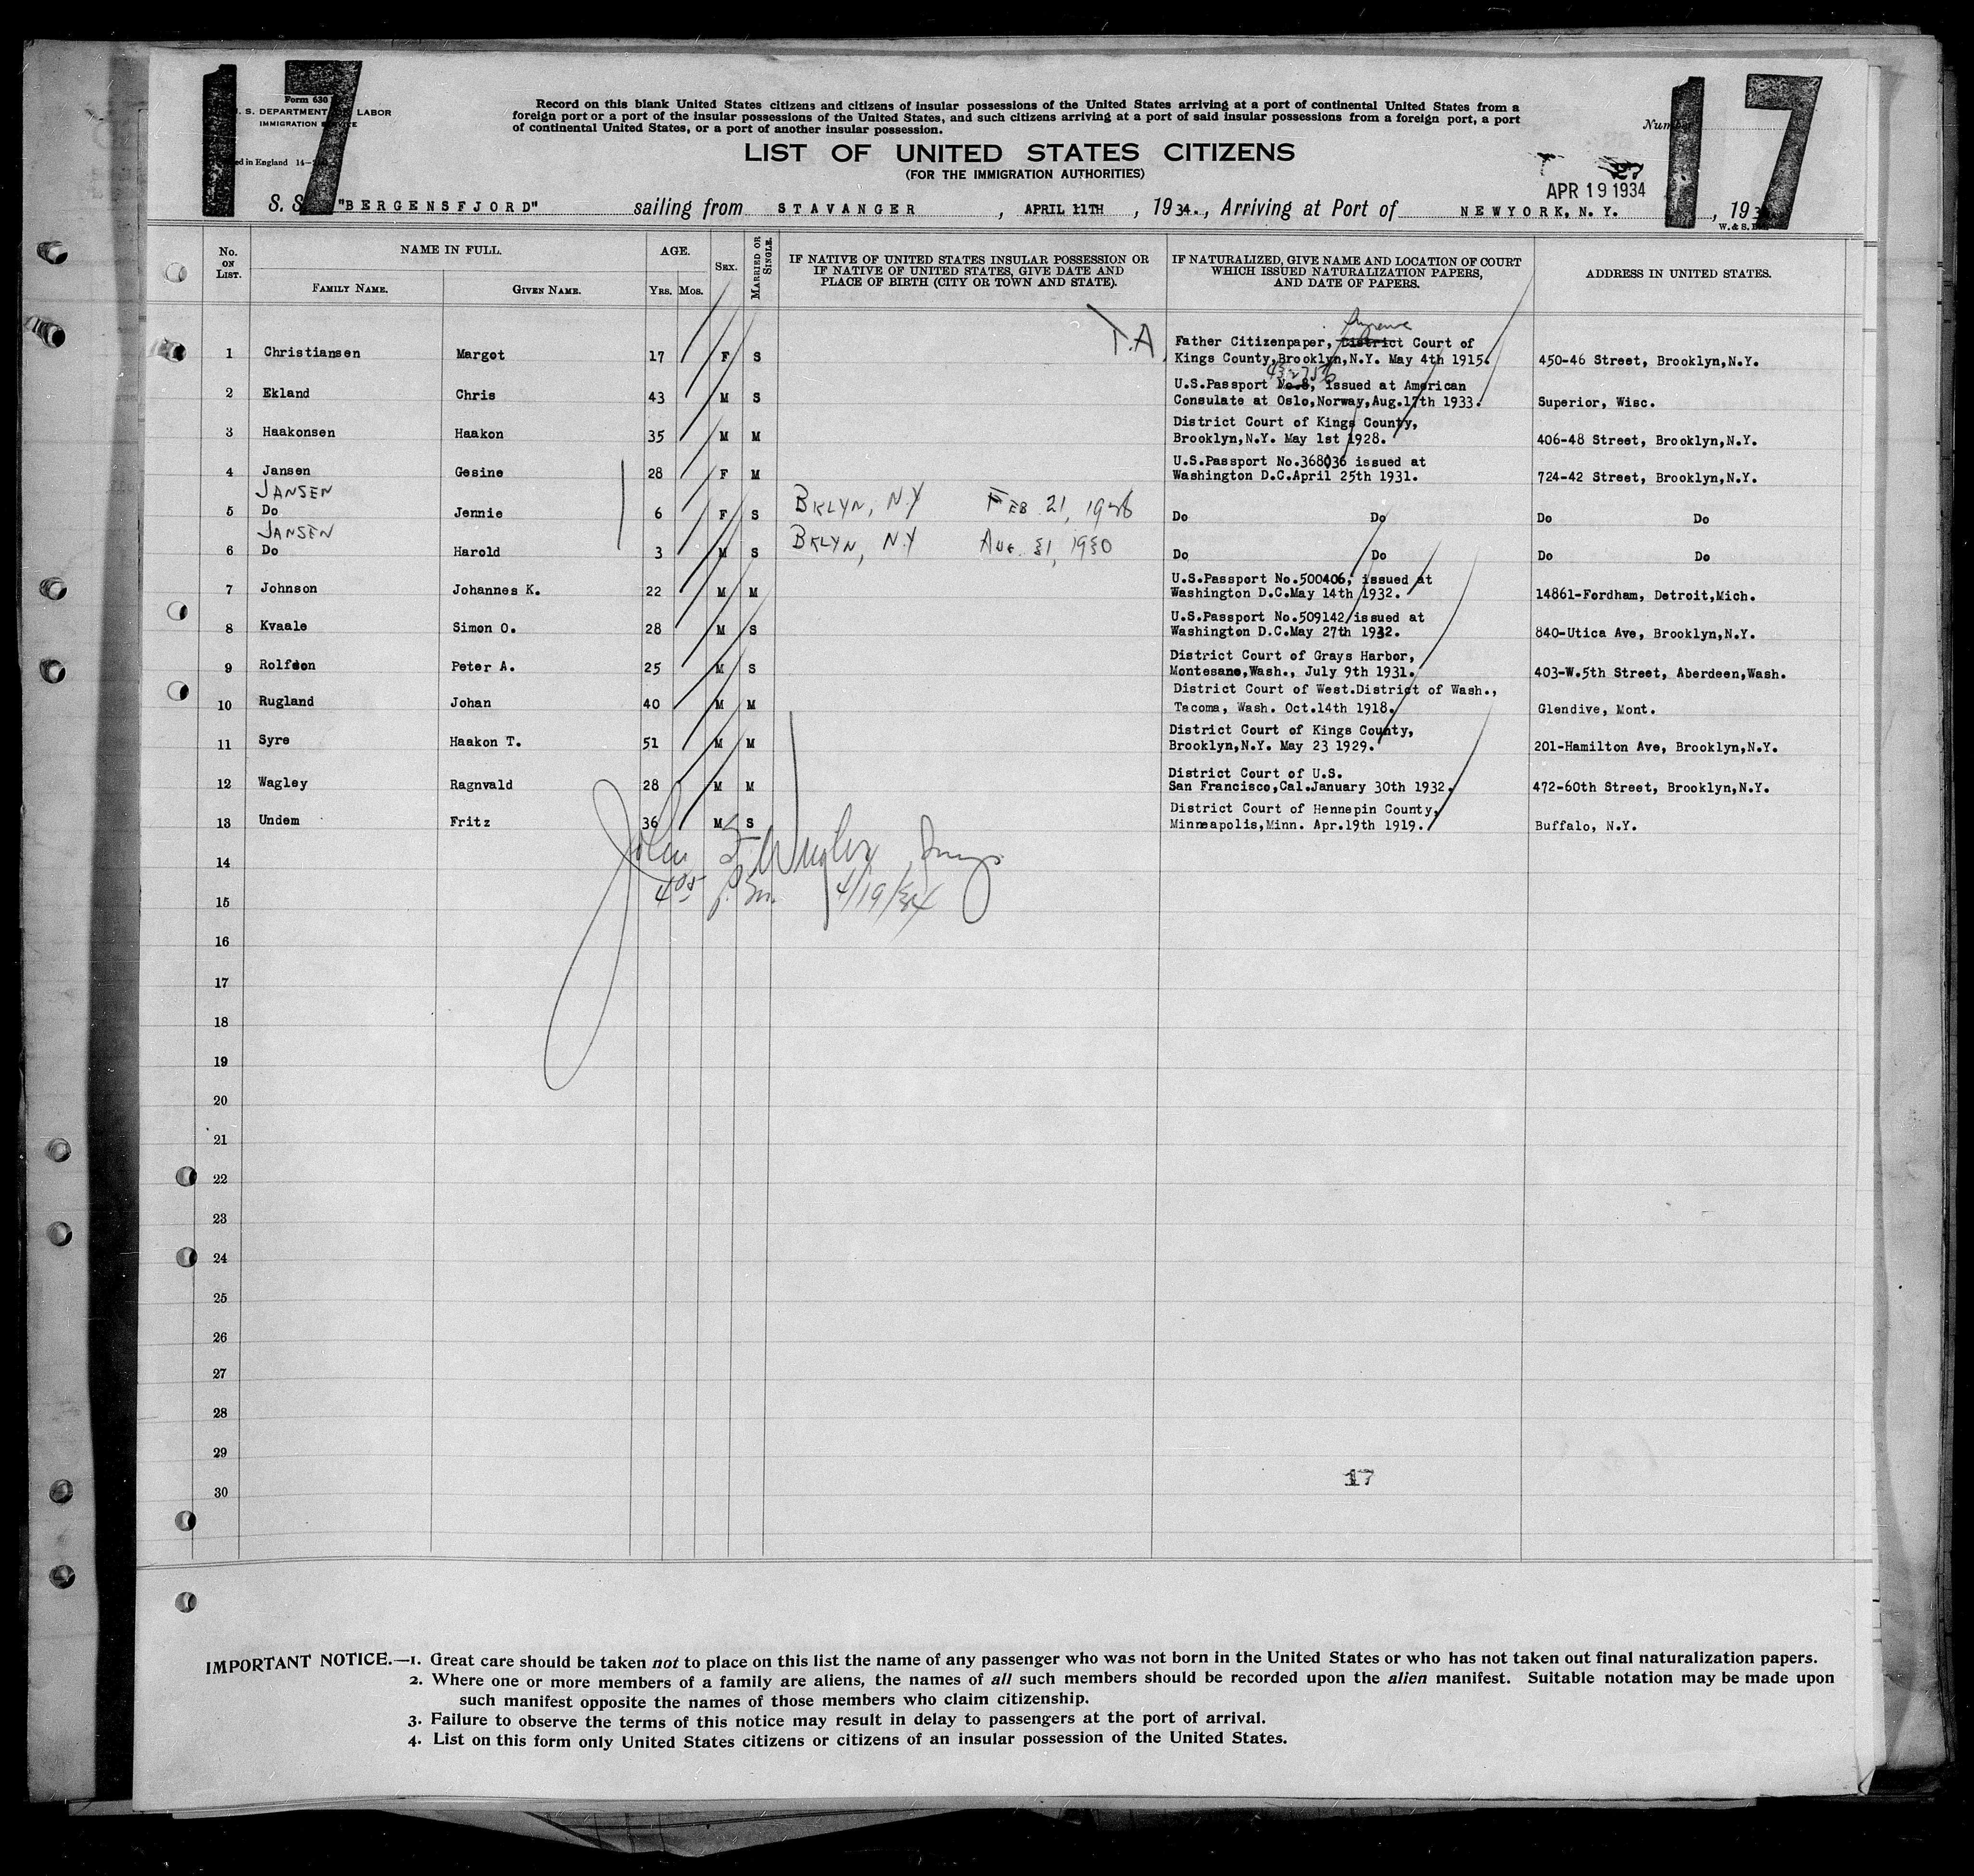 17
17
Form 630
U. S. DEPARTMENT OF LABOR
IMMIGRATION SERVICE
Record on this blank United States citizens and citizens of insular possessions of the United States arriving at a port of continental United States from a
foreign port or a port of the insular possessions of the United States, and such citizens arriving at a port of said insular possessions from a foreign port, a port
of continental United States, or a port of another insular possession.
Number
LIST OF UNITED STATES CITIZENS
(FOR THE IMMIGRATION AUTHORITIES)
APR 19 1934
S. S. "BERGENSFJORD" sailing from STAVANGER, APRIL 11TH, 1934., Arriving at Port of NEWYORK, N.Y., 193
No. ON LIST. NAME IN FULL. FAMILY NAME. GIVEN NAME. AGE. YRS. MOS. SEX. MARRIED OR SINGLE. IF NATIVE OF UNITED STATES INSULAR POSSESSION OR IF NATIVE OF UNITED STATES, GIVE DATE AND PLACE OF BIRTH (CITY OR TOWN AND STATE). IF NATURALIZED, GIVE NAME AND LOCATION OF COURT WHICH ISSUED NATURALIZATION PAPERS, AND DATE OF PAPERS. ADDRESS IN UNITED STATES.
Supreme
T.A. Father Citizenpaper, District Court of
1 Christiansen Margot 17 F S Kings County, Brooklyn, N.Y. May 4th 1915. 450-46 Street, Brooklyn, N.Y.
432756
U.S.Passport No.8, issued at American
2 Ekland Chris 43 M S Consulate at Oslo, Norway, Aug.17th 1933. Superior, Wisc.
District Court of Kings County,
3 Haakonsen Haakon 35 M M Brooklyn, N.Y. May 1st 1928. 406-48 Street, Brooklyn, N.Y.
U.S.Passport No.368036 issued at
4 Jansen Gesine 28 F M Washington D.C. April 25th 1931. 724-42 Street, Brooklyn, N.Y.
JANSEN
5 Do Jennie 6 F S BKLYN, N.Y FEB 21, 1928 Do Do Do Do
JANSEN
6 Do Harold 3 M S BKLYN, N.Y AUG. 31, 1930 Do Do Do Do
U.S.Passport No.500406, issued at
7 Johnson Johannes K. 22 M M Washington D.C. May 14th 1932. 14861-Fordham, Detroit, Mich.
U.S.Passport No.509142 issued at
8 Kvaale Simon O. 28 M S Washington D.C. May 27th 1932. 840-Utica Ave, Brooklyn, N.Y.
District Court of Grays Harbor,
9 Peter A. 25 M S Montesano, Wash., July 9th 1931. 403-W.5th Street, Aberdeen, Wash.
District Court of West.District of Wash.,
10 Rugland Johan 40 M M Tacoma, Wash. Oct.14th 1918. Glendive, Mont.
District Court of Kings County,
11 Syre Haakon T. 51 M M Brooklyn, N.Y. May 23 1929. 201-Hamilton Ave, Brooklyn, N.Y.
District Court of U.S.
12 Wagley Ragnvald 28 M M San Francisco, Cal. January 30th 1932. 472-60th Street, Brooklyn, N.Y.
District Court of Hennepin County,
13 Undem Fritz 36 M S Minneapolis, Minn. Apr.19th 1919. Buffalo, N.Y.
14 John
4 05 p.m. 4/19/34
15
16
17
18
19
20
21
22
23
24
25
26
27
28
29
17
30
IMPORTANT NOTICE.—1. Great care should be taken not to place on this list the name of any passenger who was not born in the United States or who has not taken out final naturalization papers.
2. Where one or more members of a family are aliens, the names of all such members should be recorded upon the alien manifest. Suitable notation may be made upon
such manifest opposite the names of those members who claim citizenship.
3. Failure to observe the terms of this notice may result in delay to passengers at the port of arrival.
4. List on this form only United States citizens or citizens of an insular possession of the United States.